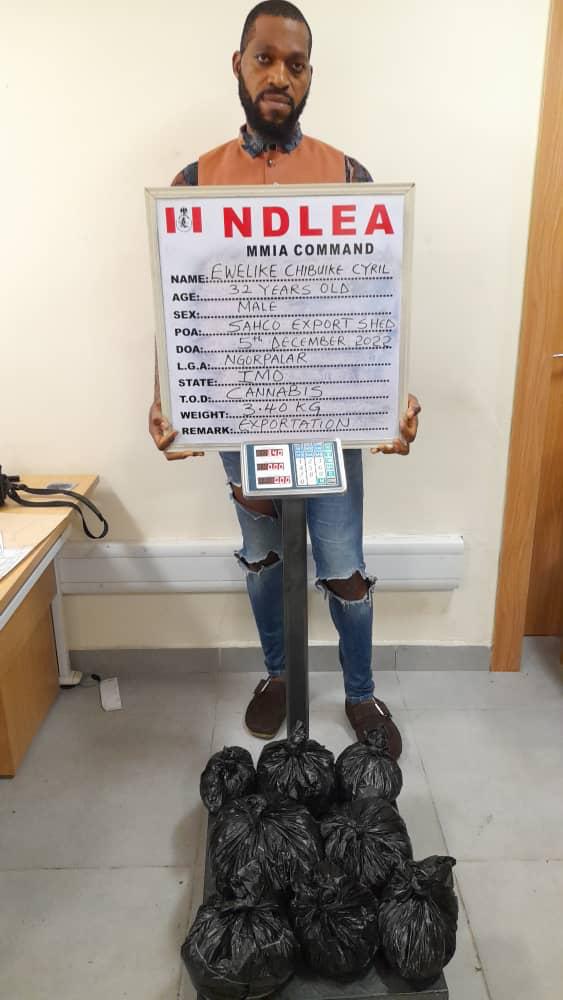 NDLEA
MMIA COMMAND
NAME: EWELIKE CHIBUIKE CYRIL
AGE: 32 YEARS OLD
SEX: MALE
POA: SAHCO EXPORT SHED
DOA: 5th DECEMBER 2022
L.G.A: NGORPALAR
STATE: IMO
T.O.D: CANNABIS
WEIGHT: 3.40 KG
REMARK: EXPORTATION